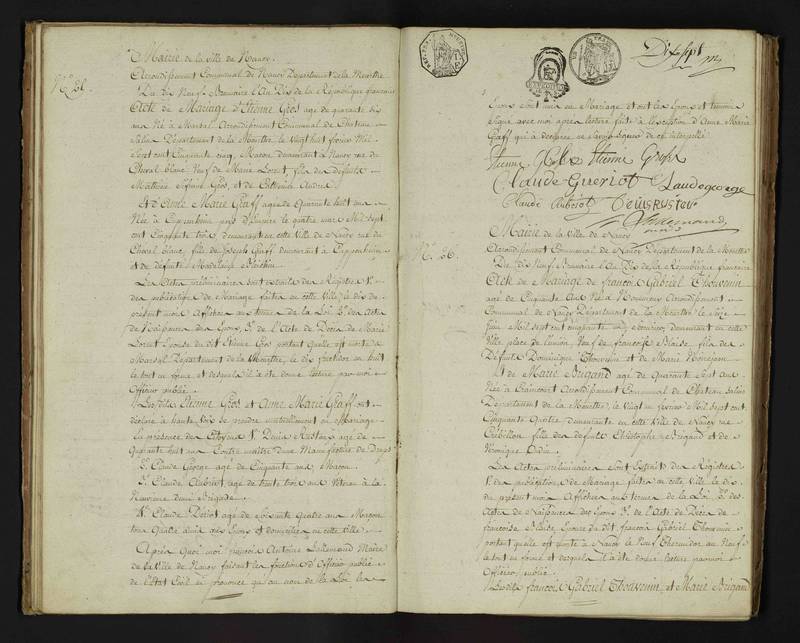 Mairie de la ville de Nancy.
N.° 25.
Arrondissement Communal de Nancy Departement de la Meurthe
Du dix Neuf Brumaire l'An dix de la République française
Acte de Mariage d'Etienne Gros agé de quarante six
ans Né à Marsal Arrondissement Communal de Chateau
Salins Département de la Meurthe, le vingt huit fevrier Mil
Sept cent Cinquante cinq, Macon, demeurant à Nancy rue du
Cheval blanc, Veuf de Marie Loret, fils de défunts
Mathieu Gros, et de Catherine
Et d'Anne Marie Graff agée de Quarante huit ans
Née à le quatre mars Mil Sept
cent Cinquante trois, demeurant en cette Ville de Nancy rue du
Cheval blanc, fille de Joseph Graff demeurant à
et de défunte Madelaine
Les Actes préliminaires sont extraits des Registres 1.°
des publications de Mariage faites en cette Ville, le dix du
présent mois Affichées aux termes de la Loi 2.° des Actes
de Naissances des Epoux, 3.° de l'Acte de Décès de Marie
Loret Epouse du dit Etienne Gros portant quelle est morte à
Marsal Département de la Meurthe, le dix fructidor an huit
le tout en forme et desquels il a été donné lecture par moi
Officier public.
Lesdits Etienne Gros et Anne Marie Graff ont
déclaré à haute voix se prendre mutuellement en Mariage
En présence des Citoyens 1.° Denis agé de
Quarante huit ans Contre maître d'une Manufacture de Draps
2.° Claude George agé de Cinquante ans Macon.
3.° Claude Aubriot, agé de trente trois ans Vétéran à la
Neuvieme demi Brigade.
4.° Claude agé de soixante quatre ans Macon
tous Quatre amis des Epoux et domiciliés en cette Ville.
Après Quoi moi françois Antoine Lallemand Maire
de la Ville de Nancy faisant les fonctions d'Officier public
de l'Etat Civil ai prononcé qu'au nom de la Loi les
Dix sept
Epoux sont unis en Mariage et ont les Epoux et temoins
signé avec moi après lecture faite à l'exception d'Anne Marie
Graff qui a déclaré ne savoir signer de ce interpellé
Etienne Etienne Gross
Claude Gueriot Claudegeorge
Claude Aubriot
Lallemand
maire
Mairie de la Ville de Nancy
N.° 26.
Arrondissement Communal de Nancy Département de la Meurthe
Du Dix Neuf Brumaire l'An Dix de la République française
Acte de Mariage de françois Gabriel Thouvenin
agé de Cinquante Ans Né à Arrondissement
Communal de Nancy Département de la Meurthe le Seize
Juin Mil sept cent cinquante demeurant en cette
Ville place de l'union, Veuf de françoise Blaise fils de
Défunts Dominique Thouvenin et de Marie
Et de Marie Brigand agée de Quarante Sept ans
Née à Arrondissement Communal de Chateau Salins
Département de la Meurthe, le Vingt un fevrier Mil Sept cent
Cinquante Quatre demeurante en cette Ville de Nancy rue
Crébillon fille des défunts Christophe Brigand et de
Veronique
Les Actes préliminaires sont Extraits des Registres
1.° des publications de Mariage faites en cette Ville le dix
du présent mois Affichées aux termes de la Loi 2.° des
Actes de Naissances des Epoux 3.° de l'Acte de Décès de
françoise Blaise Epouse du dit françois Gabriel Thouvenin
portant quelle est morte à Nancy le Neuf Thermidor an Neuf
le tout en forme et desquels il a été donné lecture par moi
Officier public.
Lesdits françois Gabriel Thouvenin, et Marie Brigand